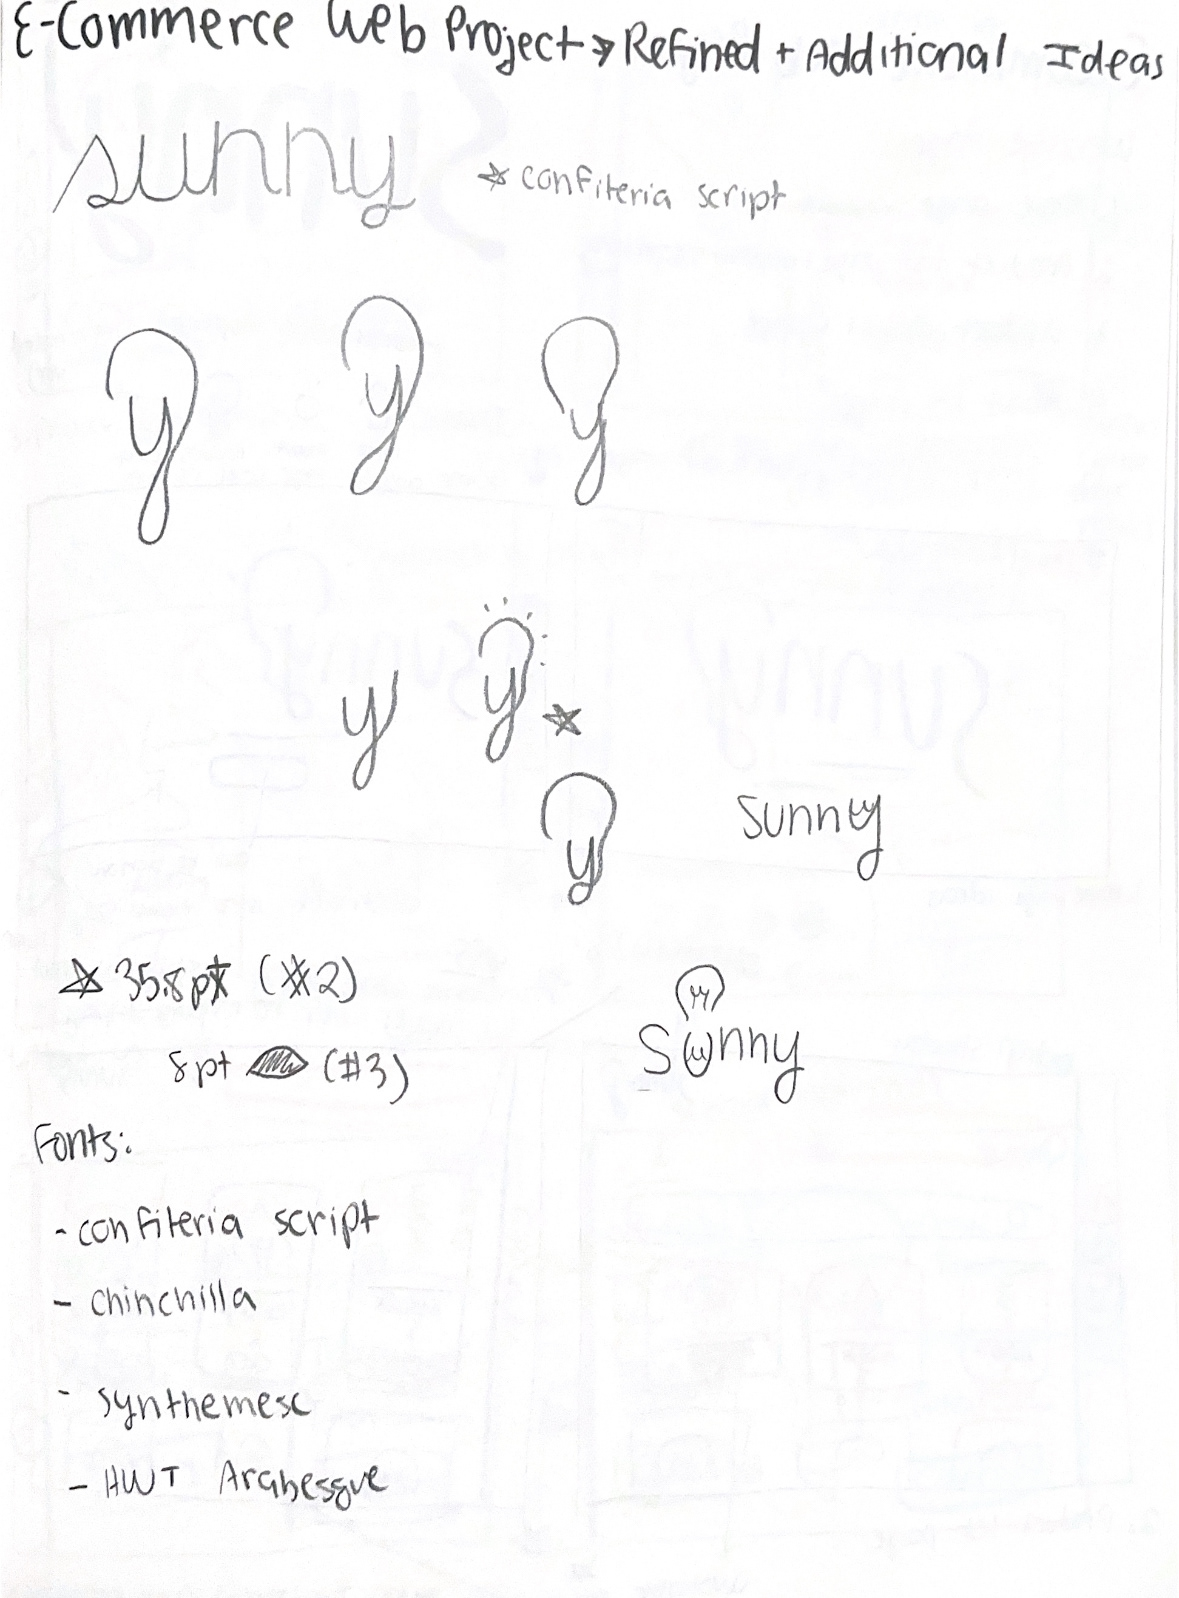 E-Commerce Web Project → Refined + Additional Ideas
sunny
☆ confiteria script
y y y
y y ☆
y
sunny
☆ 35.8pt (#2)
sunny
8pt (#3)
Fonts:
- confiteria script
- chinchilla
- synthemesc
- HWT Arabesque